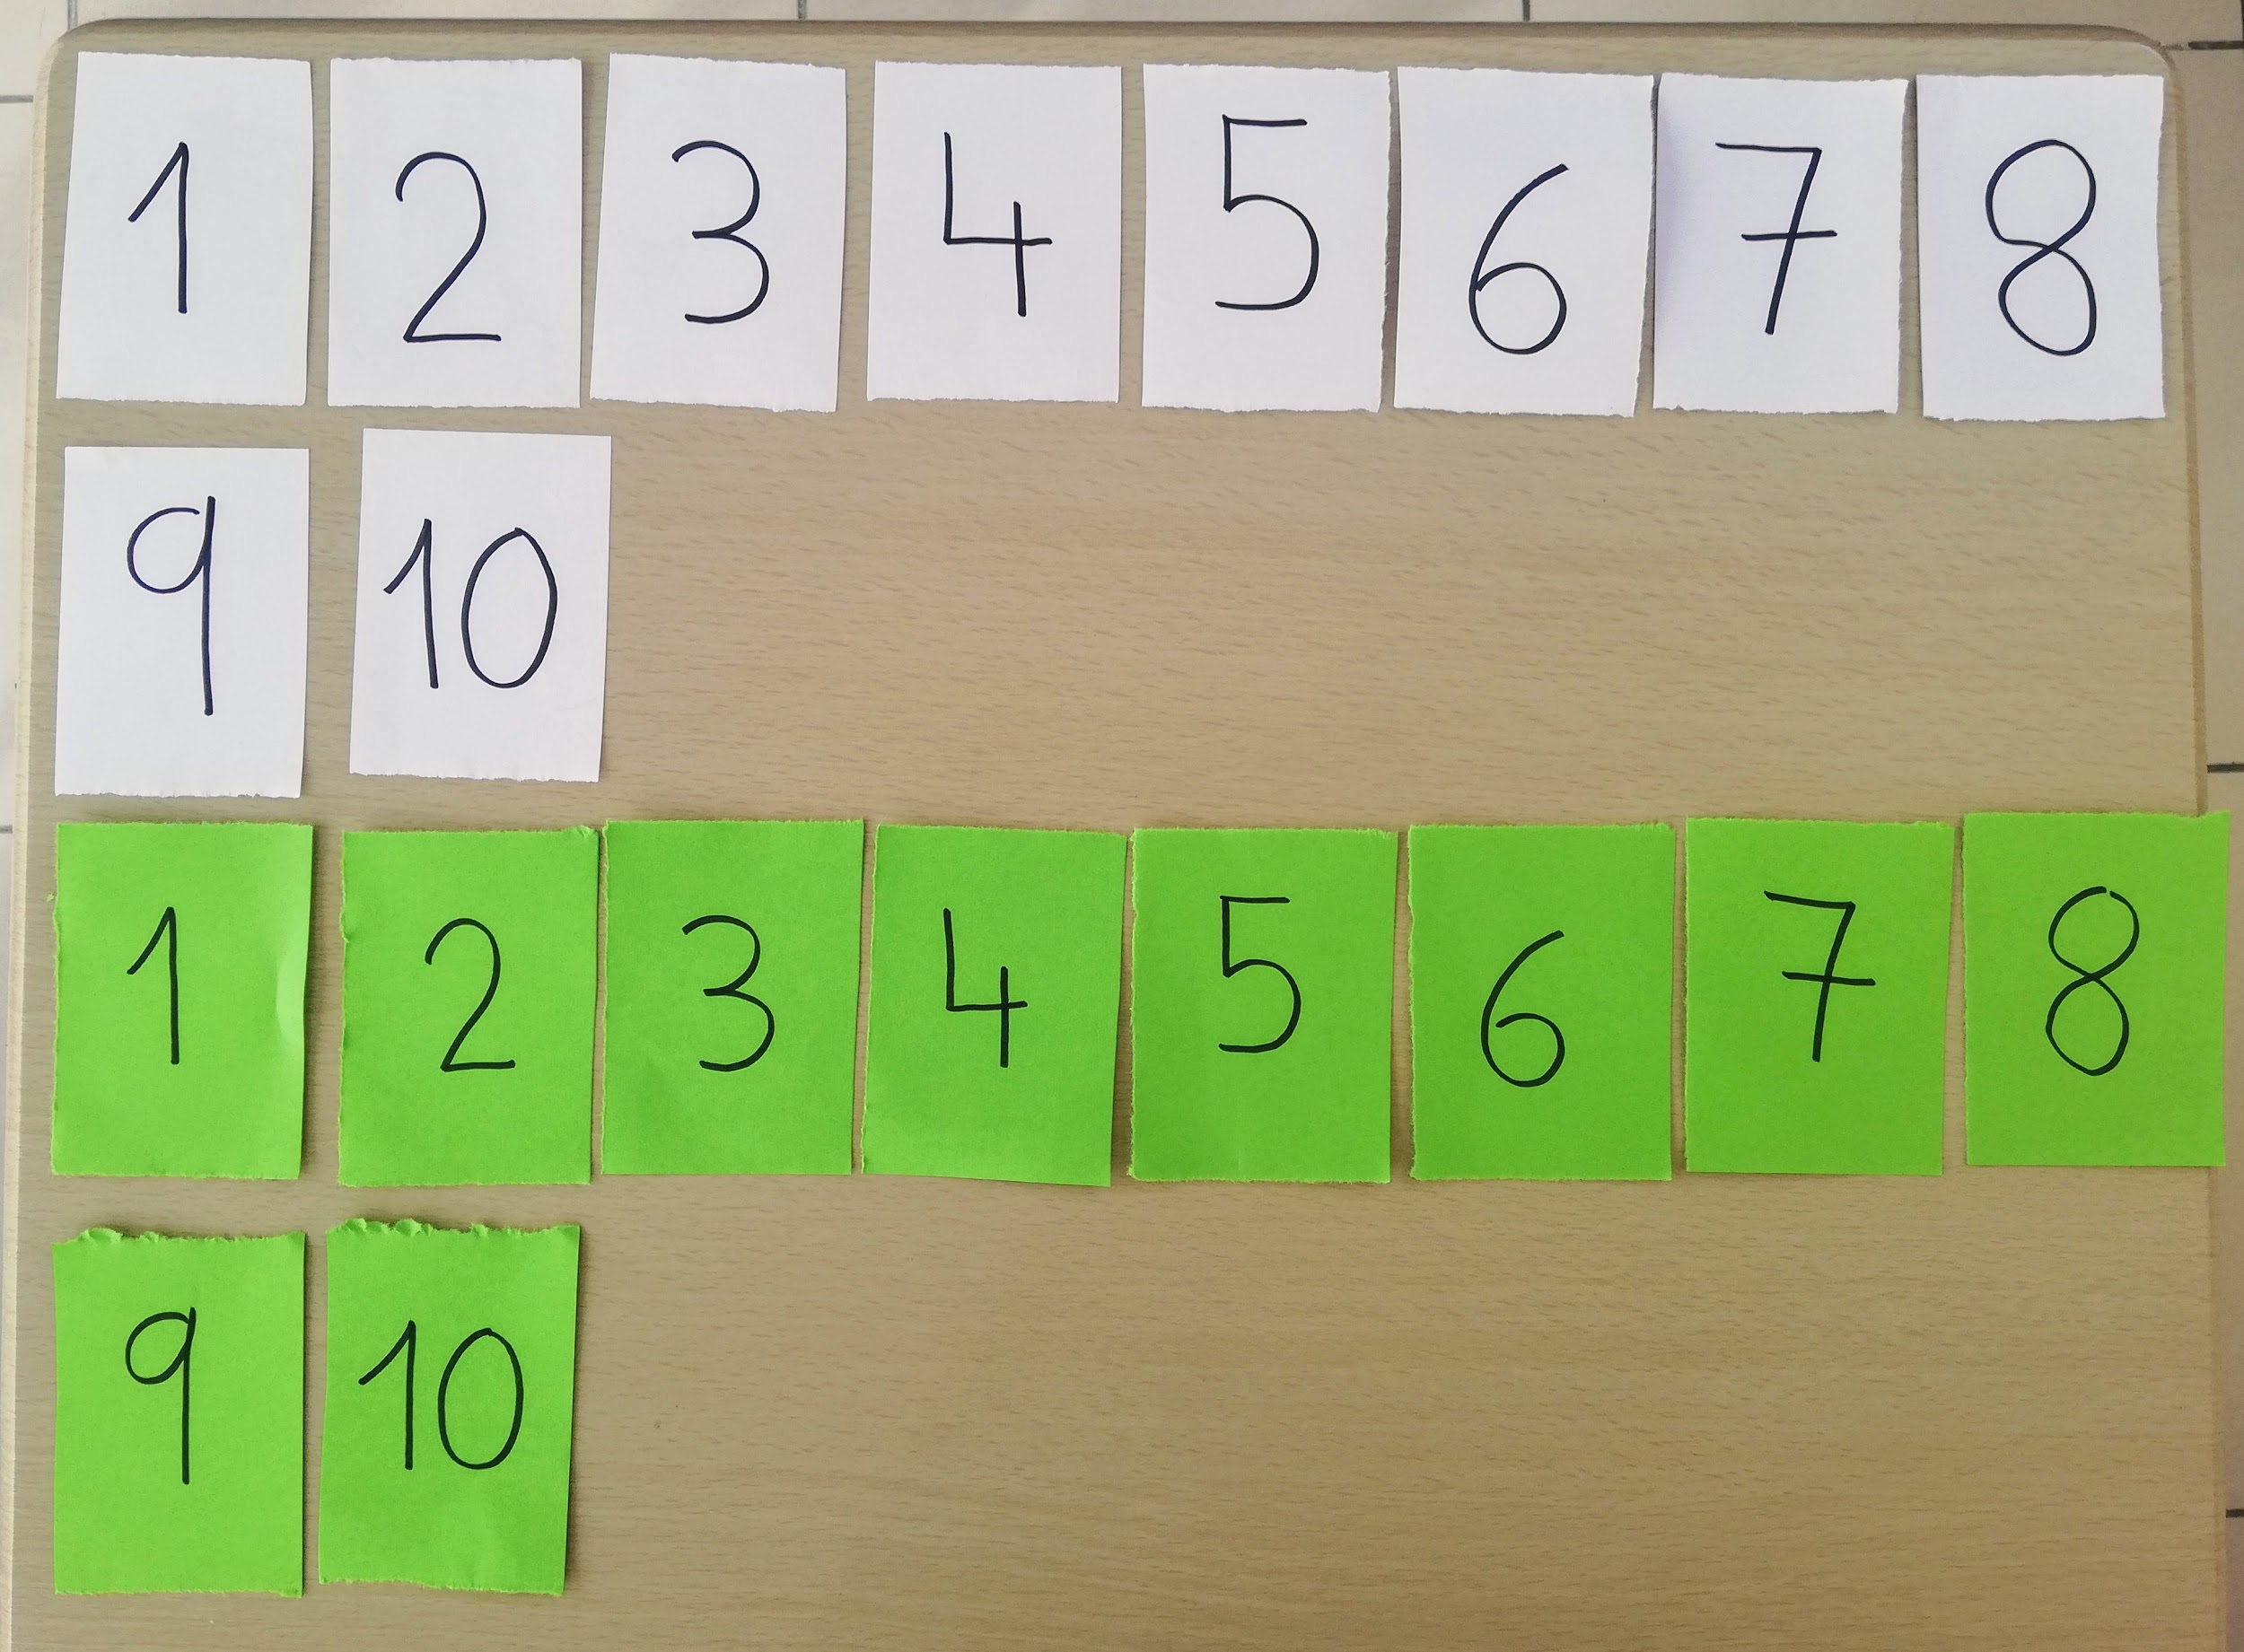 1 2 3 4 5 6 7 8
9 10
1 2 3 4 5 6 7 8
9 10